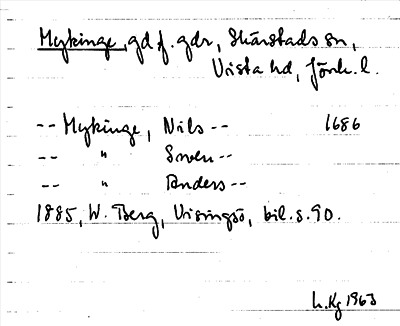 Mykinge, gd f. gdr, Skärstads sn,
Vista hd, Jönk. l.
-- Mykinge, Nils -- 1686
-- " Swen --
-- " Anders --
1885, W. Berg, Visingsö, bil. s. 90.
L. Kg 1963